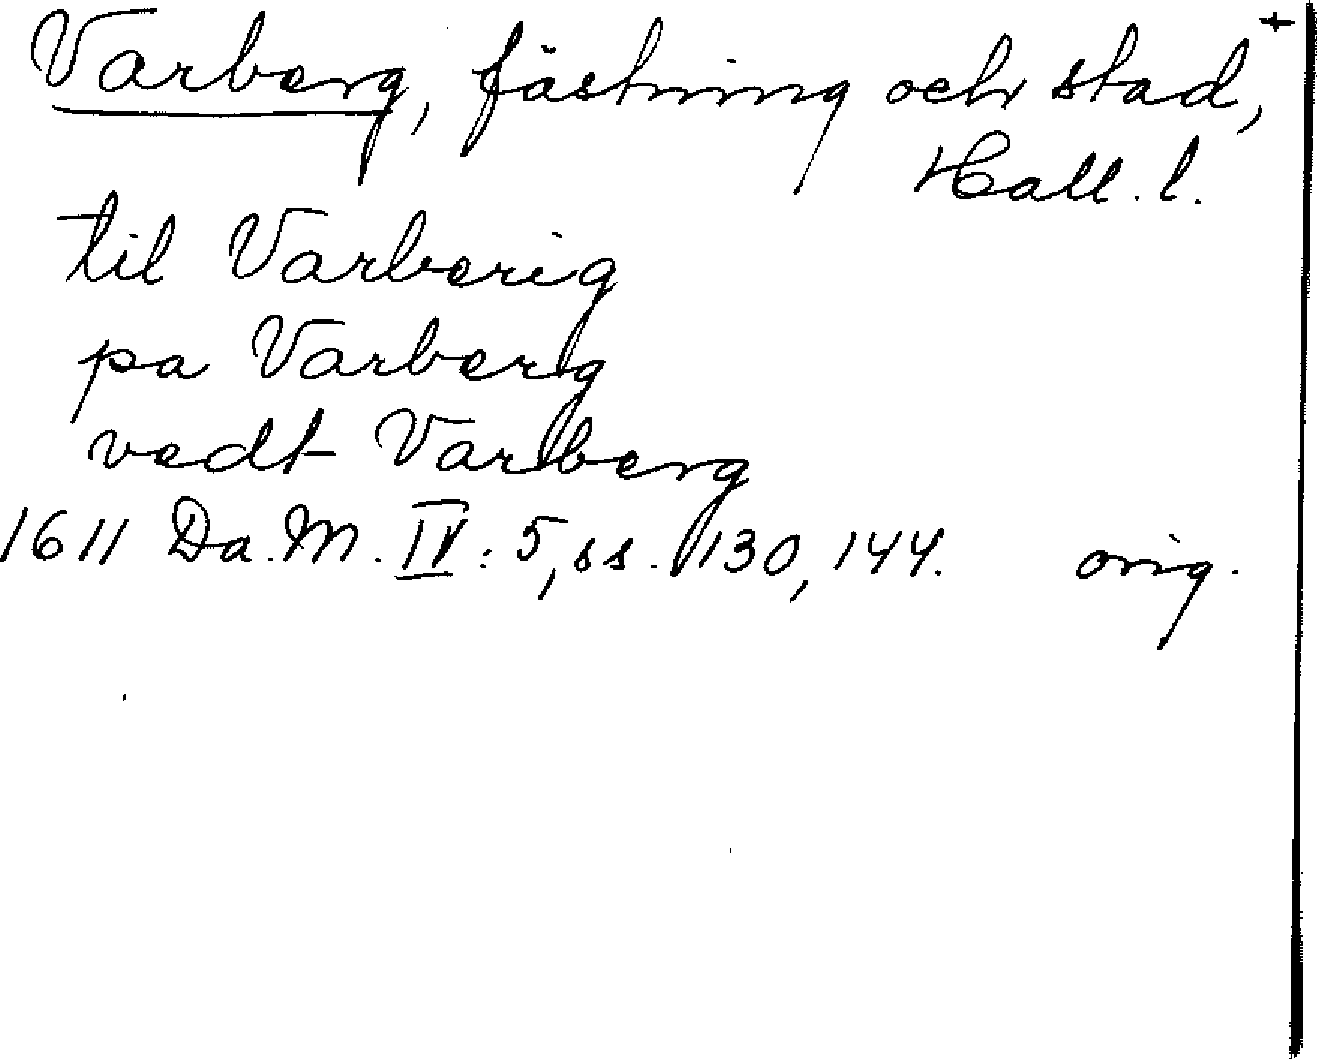 Varberg, fästning och stad, +
Hall. l.
til Varberig
pa Varberg
vedt Varberg
1611 Da. M. IV: 5, ss. 130, 144. orig.